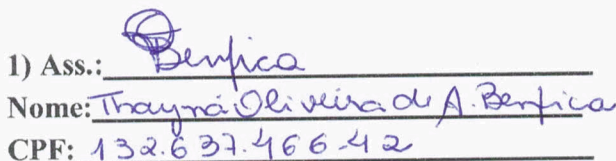 1) Ass.: Benfica
Nome: Thayná Oliveira de A. Benfica
CPF: 132.637.466-42